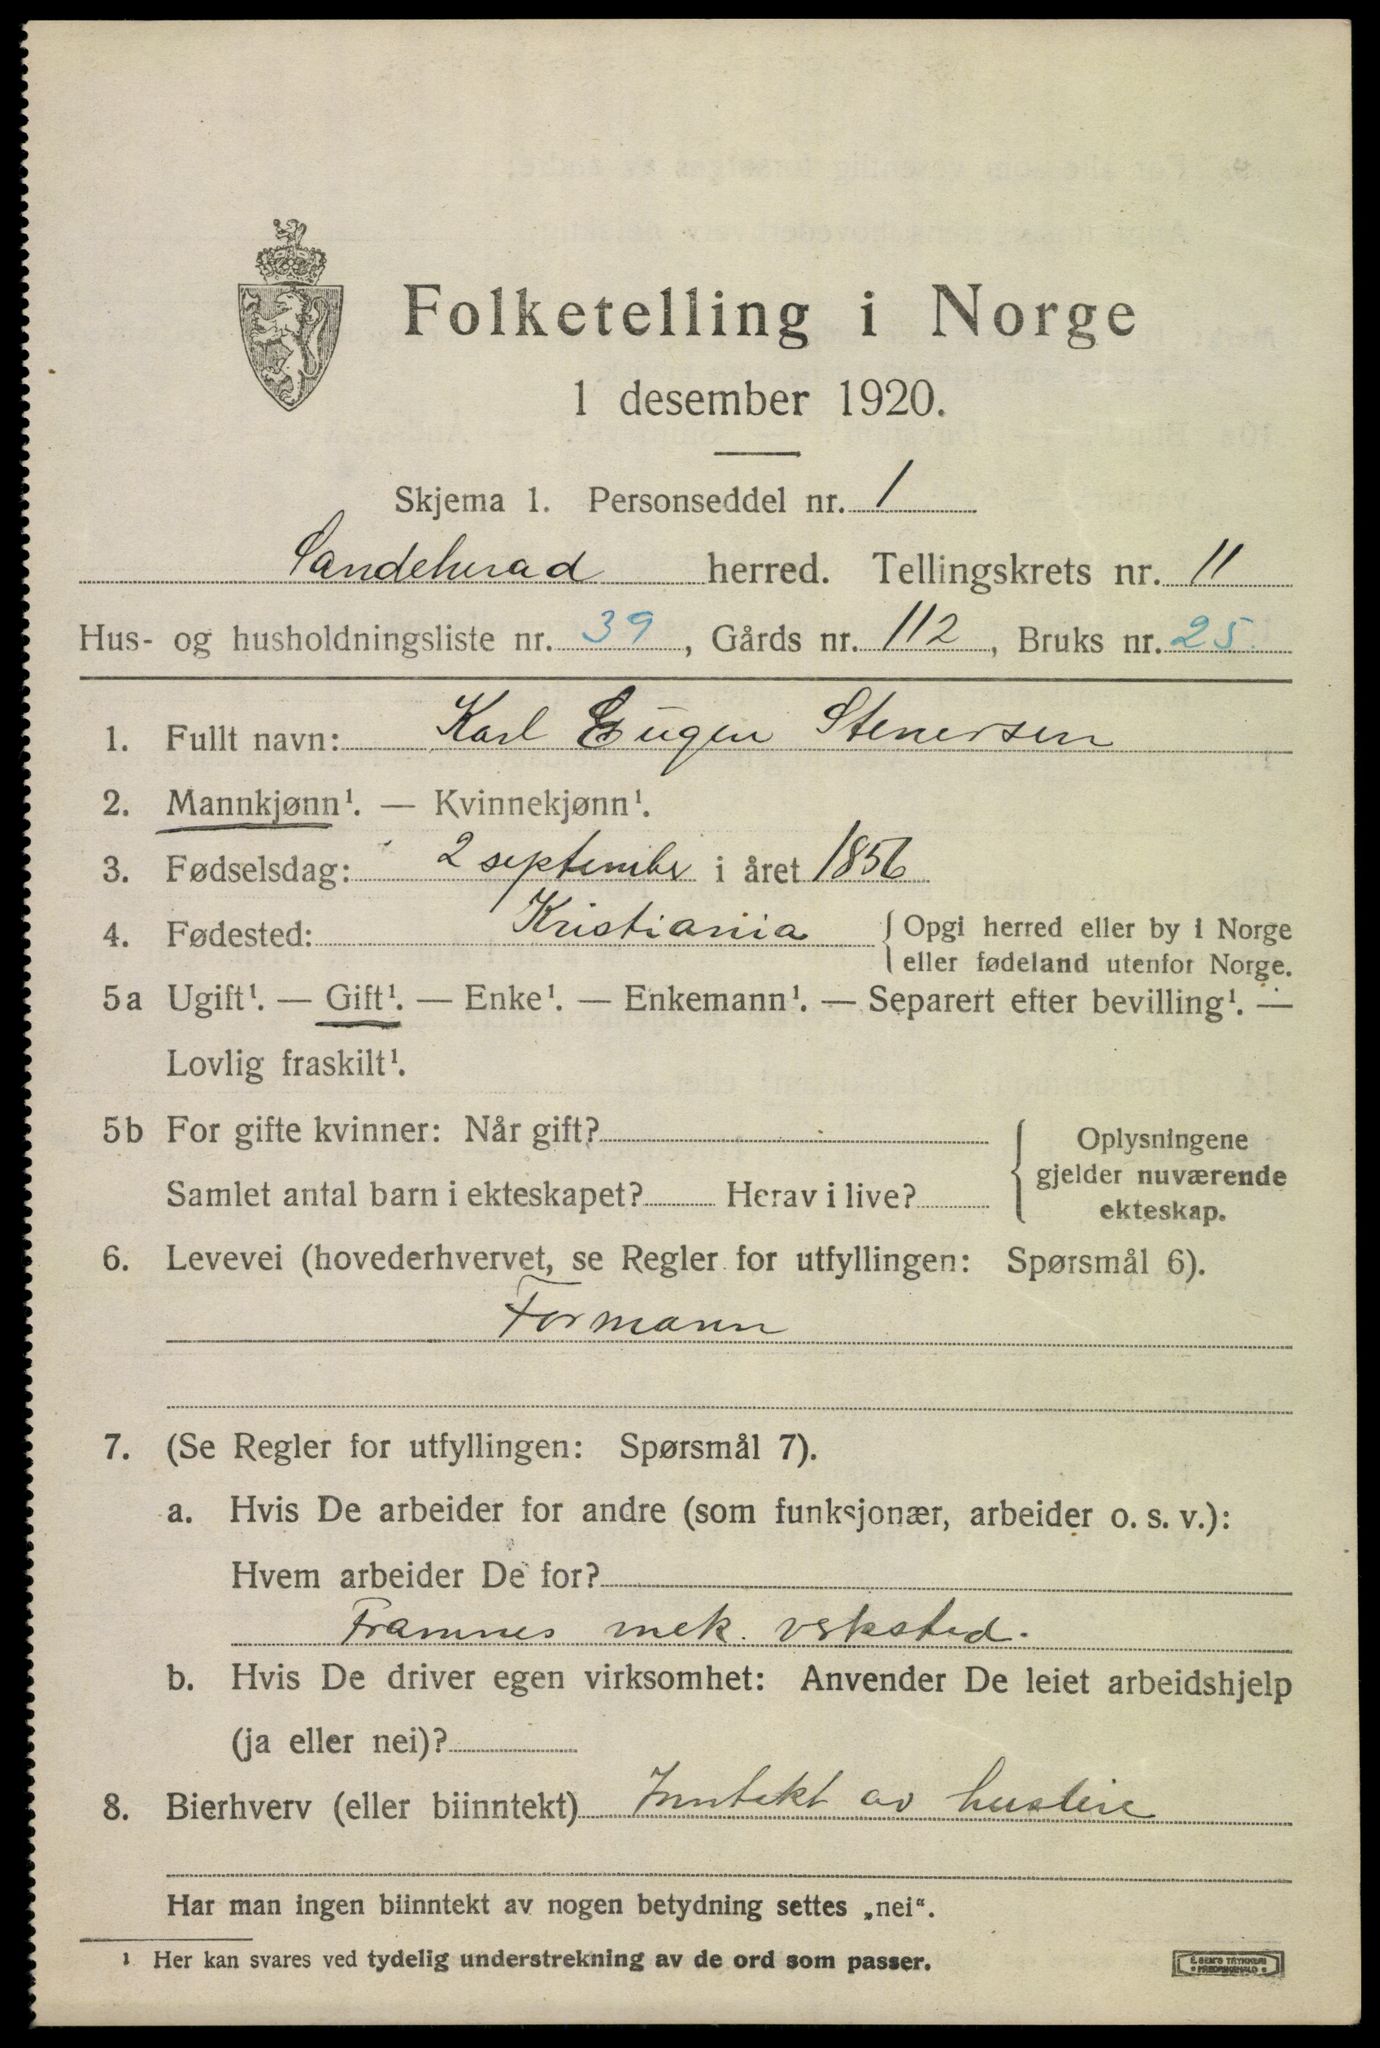 Folketelling i Norge
1 desember 1920.
Skjema 1. Personseddel nr. 1
Sandeherad herred. Tellingskrets nr. 11
Hus- og husholdningsliste nr. 39, Gårds nr. 112, Bruks nr. 25.
1. Fullt navn: Karl Eugen Stenersen
2. Mannkjønn¹. — Kvinnekjønn¹.
3. Fødselsdag: 2 septembr i året 1856
4. Fødested: Kristiania { Opgi herred eller by i Norge
eller fødeland utenfor Norge.
5a Ugift¹. — Gift¹. — Enke¹. — Enkemann¹. — Separert efter bevilling¹. —
Lovlig fraskilt¹.
5b For gifte kvinner: Når gift?
Samlet antal barn i ekteskapet? Herav i live?
{ Oplysningene
gjelder nuværende
ekteskap.
6. Levevei (hovederhvervet, se Regler for utfyllingen: Spørsmål 6).
Formann
7. (Se Regler for utfyllingen: Spørsmål 7).
a. Hvis De arbeider for andre (som funksjonær, arbeider o. s. v.):
Hvem arbeider De for?
Framnes mek. verksted.
b. Hvis De driver egen virksomhet: Anvender De leiet arbeidshjelp
(ja eller nei)?
8. Bierhverv (eller biinntekt) Inntekt av husleie
Har man ingen biinntekt av nogen betydning settes „nei“.
¹ Her kan svares ved tydelig understrekning av de ord som passer.
E. SEM'S TRYKKERI
FREDRIKSHALD